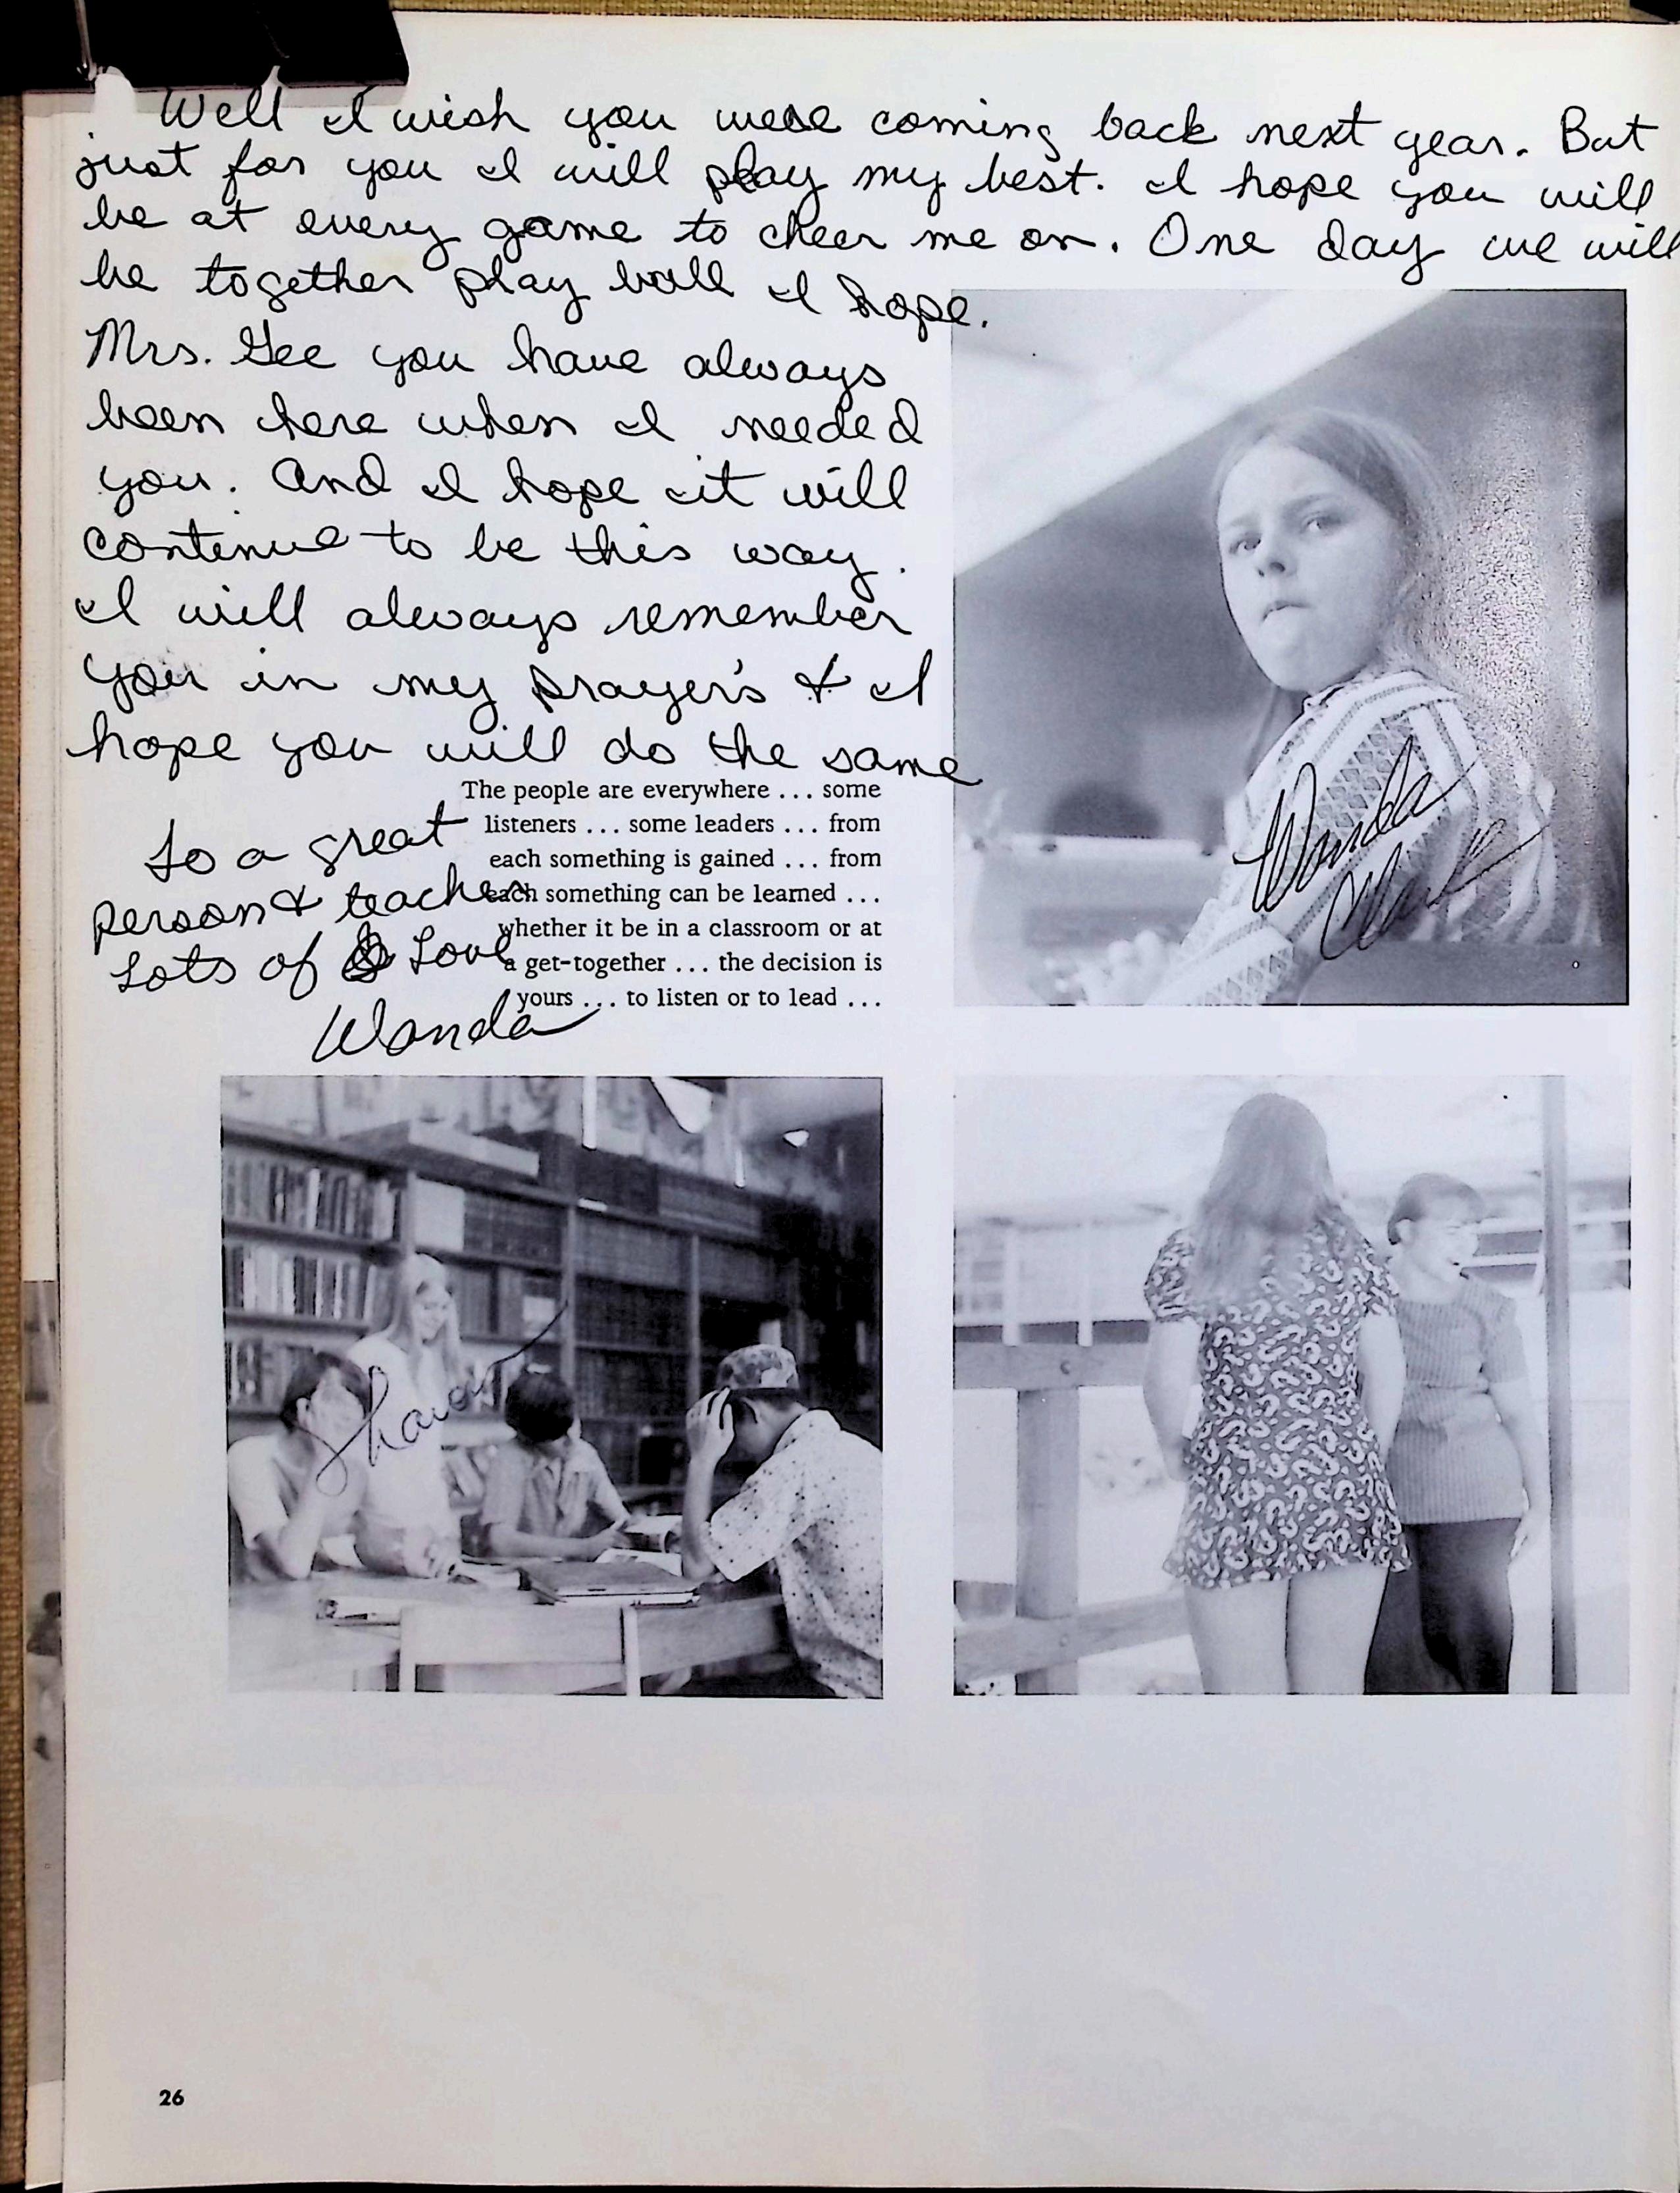 Well I wish you were coming back next year. But
just for you I will play my best. I hope you will
be at every game to cheer me on. One day we will
be together play ball I hope.
Mrs. Gee you have always
been here when I needed
you. And I hope it will
continue to be this way.
I will always remember
you in my prayer's & I
hope you will do the same
To a great
person & teacher
Lots of Love
Wanda
The people are everywhere ... some
listeners ... some leaders ... from
each something is gained ... from
each something can be learned ...
whether it be in a classroom or at
a get-together ... the decision is
yours ... to listen or to lead ...
Wanda
Clark
Sharon
26